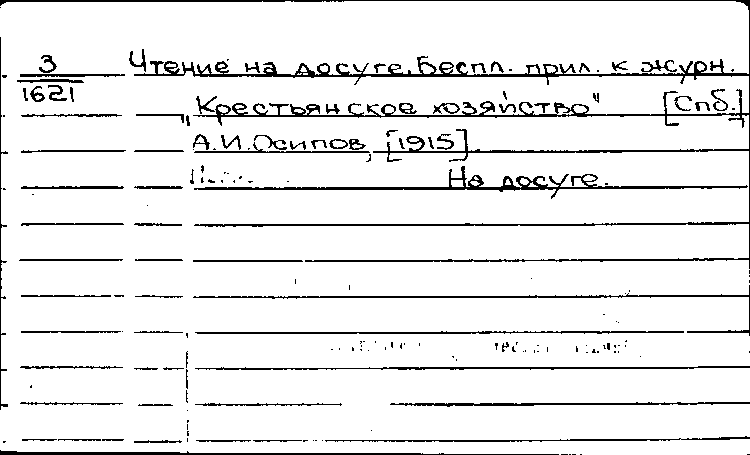 3 Чтение на досуге. Беспл. прил. к журн.
1621 „Крестьянское хозяйство" [Спб.]
А.И.Осипов, [1915].
На досуге.